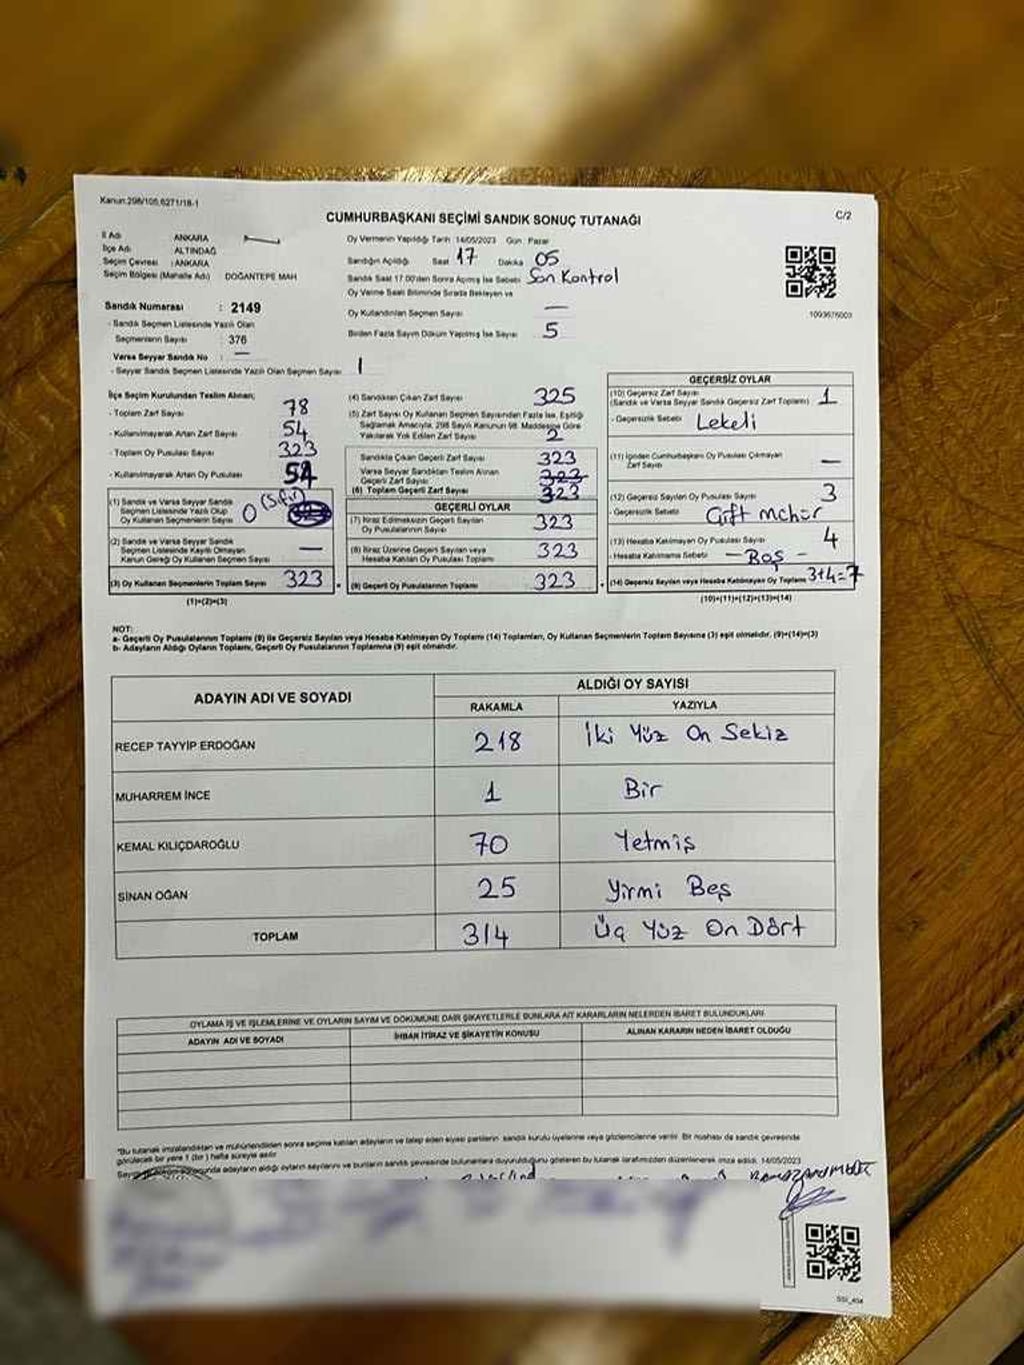 Kanun:298/105,6271/18-1
CUMHURBAŞKANI SEÇİMİ SANDIK SONUÇ TUTANAĞI
C/2
İl Adı ANKARA
İlçe Adı ALTINDAĞ
Seçim Çevresi : ANKARA
Seçim Bölgesi (Mahalle Adı) DOĞANTEPE MAH
Sandık Numarası : 2149
- Sandık Seçmen Listesinde Yazılı Olan
Seçmenlerin Sayısı 376
Varsa Seyyar Sandık No : —
- Seyyar Sandık Seçmen Listesinde Yazılı Olan Seçmen Sayısı 1
Oy Vermenin Yapıldığı Tarih 14/05/2023 Gün Pazar
Sandığın Açıldığı Saat 17 Dakika 05
Sandık Saat 17.00'den Sonra Açılmış İse Sebebi Son Kontrol
Oy Verme Saati Bitiminde Sırada Bekleyen ve
Oy Kullandırılan Seçmen Sayısı —
Birden Fazla Sayım Döküm Yapılmış İse Sayısı 5
1093676003
İlçe Seçim Kurulundan Teslim Alınan;
- Toplam Zarf Sayısı 78
- Kullanılmayarak Artan Zarf Sayısı 54
- Toplam Oy Pusulası Sayısı 323
- Kullanılmayarak Artan Oy Pusulası 54
(1) Sandık ve Varsa Seyyar Sandık
Seçmen Listesinde Yazılı Olup
Oy Kullanan Seçmenlerin Sayısı 0 (Sıfır)
(2) Sandık ve Varsa Seyyar Sandık
Seçmen Listesinde Kayıtlı Olmayan
Kanun Gereği Oy Kullanan Seçmen Sayısı —
(3) Oy Kullanan Seçmenlerin Toplam Sayısı 323
(1)+(2)=(3)
(4) Sandıktan Çıkan Zarf Sayısı 325
(5) Zarf Sayısı Oy Kullanan Seçmen Sayısından Fazla İse, Eşitliği
Sağlamak Amacıyla, 298 Sayılı Kanunun 98. Maddesine Göre
Yakılarak Yok Edilen Zarf Sayısı 2
Sandıkta Çıkan Geçerli Zarf Sayısı 323
Varsa Seyyar Sandıktan Teslim Alınan
Geçerli Zarf Sayısı 323
(6) Toplam Geçerli Zarf Sayısı 323
GEÇERLİ OYLAR
(7) İtiraz Edilmeksizin Geçerli Sayılan
Oy Pusulalarının Sayısı 323
(8) İtiraz Üzerine Geçerli Sayılan veya
Hesaba Katılan Oy Pusulası Toplamı 323
(9) Geçerli Oy Pusulalarının Toplamı 323
GEÇERSİZ OYLAR
(10) Geçersiz Zarf Sayısı 1
(Sandık ve Varsa Seyyar Sandık Geçersiz Zarf Toplamı)
- Geçersizlik Sebebi Lekeli
(11) İçinden Cumhurbaşkanı Oy Pusulası Çıkmayan
Zarf Sayısı —
(12) Geçersiz Sayılan Oy Pusulası Sayısı 3
- Geçersizlik Sebebi Çift mühür
(13) Hesaba Katılmayan Oy Pusulası Sayısı 4
- Hesaba Katılmama Sebebi — Boş —
(14) Geçersiz Sayılan veya Hesaba Katılmayan Oy Toplamı 3+4=7
(10)+(11)+(12)+(13)=(14)
NOT:
a- Geçerli Oy Pusulalarının Toplamı (9) ile Geçersiz Sayılan veya Hesaba Katılmayan Oy Toplamı (14) Toplamları, Oy Kullanan Seçmenlerin Toplam Sayısına (3) eşit olmalıdır. (9)+(14)=(3)
b- Adayların Aldığı Oyların Toplamı, Geçerli Oy Pusulalarının Toplamına (9) eşit olmalıdır.
ADAYIN ADI VE SOYADI
ALDIĞI OY SAYISI
RAKAMLA YAZIYLA
RECEP TAYYİP ERDOĞAN 218 İki Yüz On Sekiz
MUHARREM İNCE 1 Bir
KEMAL KILIÇDAROĞLU 70 Yetmiş
SİNAN OĞAN 25 Yirmi Beş
TOPLAM 314 Üç Yüz On Dört
OYLAMA İŞ VE İŞLEMLERİNE VE OYLARIN SAYIM VE DÖKÜMÜNE DAİR ŞİKAYETLERLE BUNLARA AİT KARARLARIN NELERDEN İBARET BULUNDUKLARI
ADAYIN ADI VE SOYADI İHBAR İTİRAZ VE ŞİKAYETİN KONUSU ALINAN KARARIN NEDEN İBARET OLDUĞU
"Bu tutanak imzalandıktan ve mühürlendikten sonra seçime katılan adayların ve talep eden siyasi partilerin sandık kurulu üyelerine veya gözlemcilerine verilir. Bir nüshası da sandık çevresinde
görülecek bir yere 1 (bir) hafta süreyle asılır
adayların aldığı oyların sayılarını ve bunların sandık çevresinde bulunanlara duyurulduğunu gösteren bu tutanak tarafımızdan düzenlenerek imza edildi. 14/05/2023